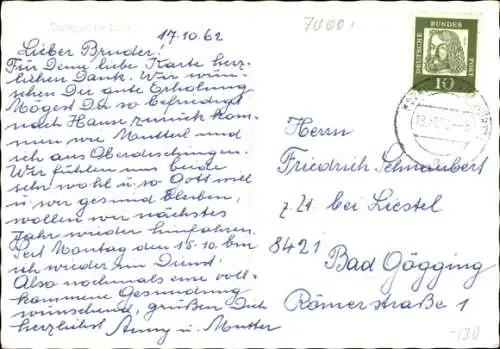 17.10.62
Lieber Bruder!
Für Deine liebe Karte herz-
lichen Dank. Wir wün-
schen Dir gute Erholung
Mögest Du so befriedigt
nach Hause zurück kom-
men wie Mutterl und
ich aus Oberdischingen.
Wir fühlen uns beide
sehr wohl u. so Gott will
u. wir gesund bleiben,
wollen wir nächstes
Jahr wieder hinfahren.
Seit Montag den 15.10. bin
ich wieder im Dienst.
Also nochmals eine voll-
kommene Gesundung
wünschend, grüßen Dich
herzlichst Anny u. Mutter
7000
DEUTSCHE BUNDES POST
10
Herrn
Friedrich Schnaubert
z. Zt. bei Liestel
8421 Bad Gögging
Römerstraße 1
-130